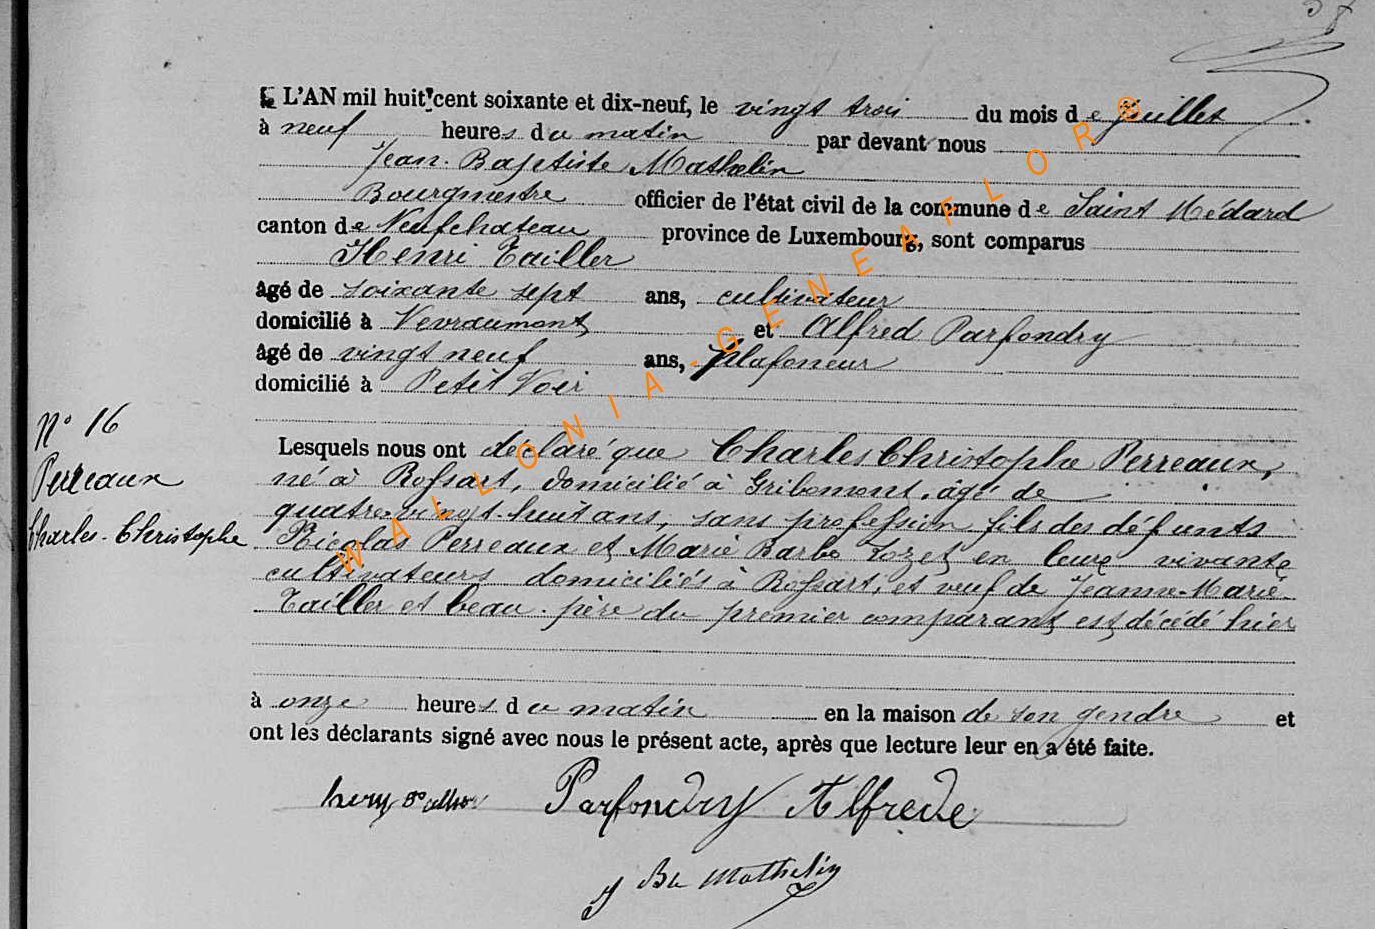 L'AN mil huit cent soixante et dix-neuf, le vingt trois du mois de Juillet
à neuf heures du matin par devant nous
Jean-Baptiste Mathelin
Bourgmestre officier de l'état civil de la commune de Saint Médard
canton de Neufchateau province de Luxembourg, sont comparus
Henri Tailler
âgé de soixante sept ans, cultivateur
domicilié à Vevraumont et Alfred Parfondry
âgé de vingt neuf ans, plafoneur
domicilié à Petit Voir
N° 16
Perreaux
Charles-Christophe
Lesquels nous ont déclaré que Charles Christophe Perreaux,
né à Rossart, domicilié à Gribomont, âgé de
quatre-vingt-huit ans, sans profession fils des défunts
Nicolas Perreaux et Marie Barbe Tozet en leurs vivants
cultivateurs domiciliés à Rossart, et veuf de Jeanne-Marie
Tailler et beau-père du premier comparant est décédé hier
à onze heures du matin en la maison de son gendre et
ont les déclarants signé avec nous le présent acte, après que lecture leur en a été faite.
Parfondry Alfrede
J Bte Mathelin
WALLONIA-GENEAFLOR®